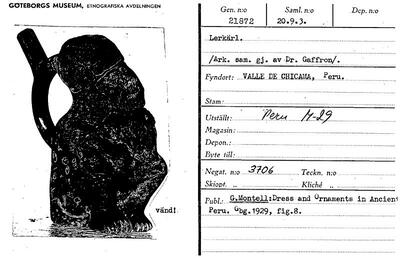 GÖTEBORGS MUSEUM, ETNOGRAFISKA AVDELNINGEN
vänd!
Gen. n:o Saml. n:o Dep. n:o
21872 20.9.3.
Lerkärl.
/Ark. sam. gj. av Dr. Gaffron/.
Fyndort: VALLE DE CHICAMA, Peru.
Stam:
Utställt: Peru H-29
Magasin:
Depon.:
Byte till:
Negat. n:o 3706 Teckn. n:o
Skiopt. „ Kliché „
Publ.: G.Montell:Dress and Ornaments in Ancient
Peru. Gbg.1929, fig.8.